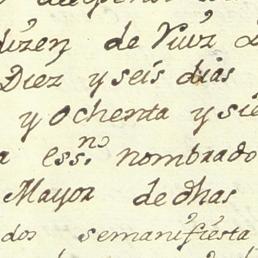 dizen de
Diez y seis dias
y ochenta y sie
a essno. nombrado
Mayor de dhas
dos semanifiesta